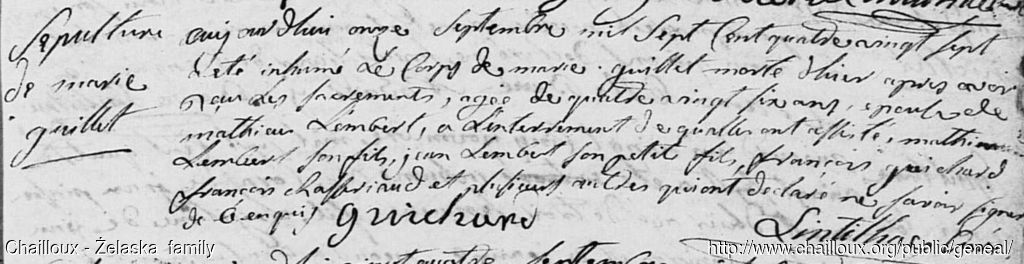 Sepulture
de marie
guillet
aujourdhui onze Septembre mil Sept Cent quatre vingt sept
a eté inhumé Le Corps de marie guillet morte d'hier apres avoir
Reçu Les Sacrements, agée de quatre vingt six ans, epouse de
mathieu Lembert, a L'enterrement de quelle ont assisté, mathieu
Lembert son fils, jean Lembert son petit fils, françois guichard
françois chasseriaud et plusieurs autres qui ont declaré ne savoir signer
de Ce enquis guichard
Chailloux - Želaska family
http://www.chailloux.org/public/geneal/